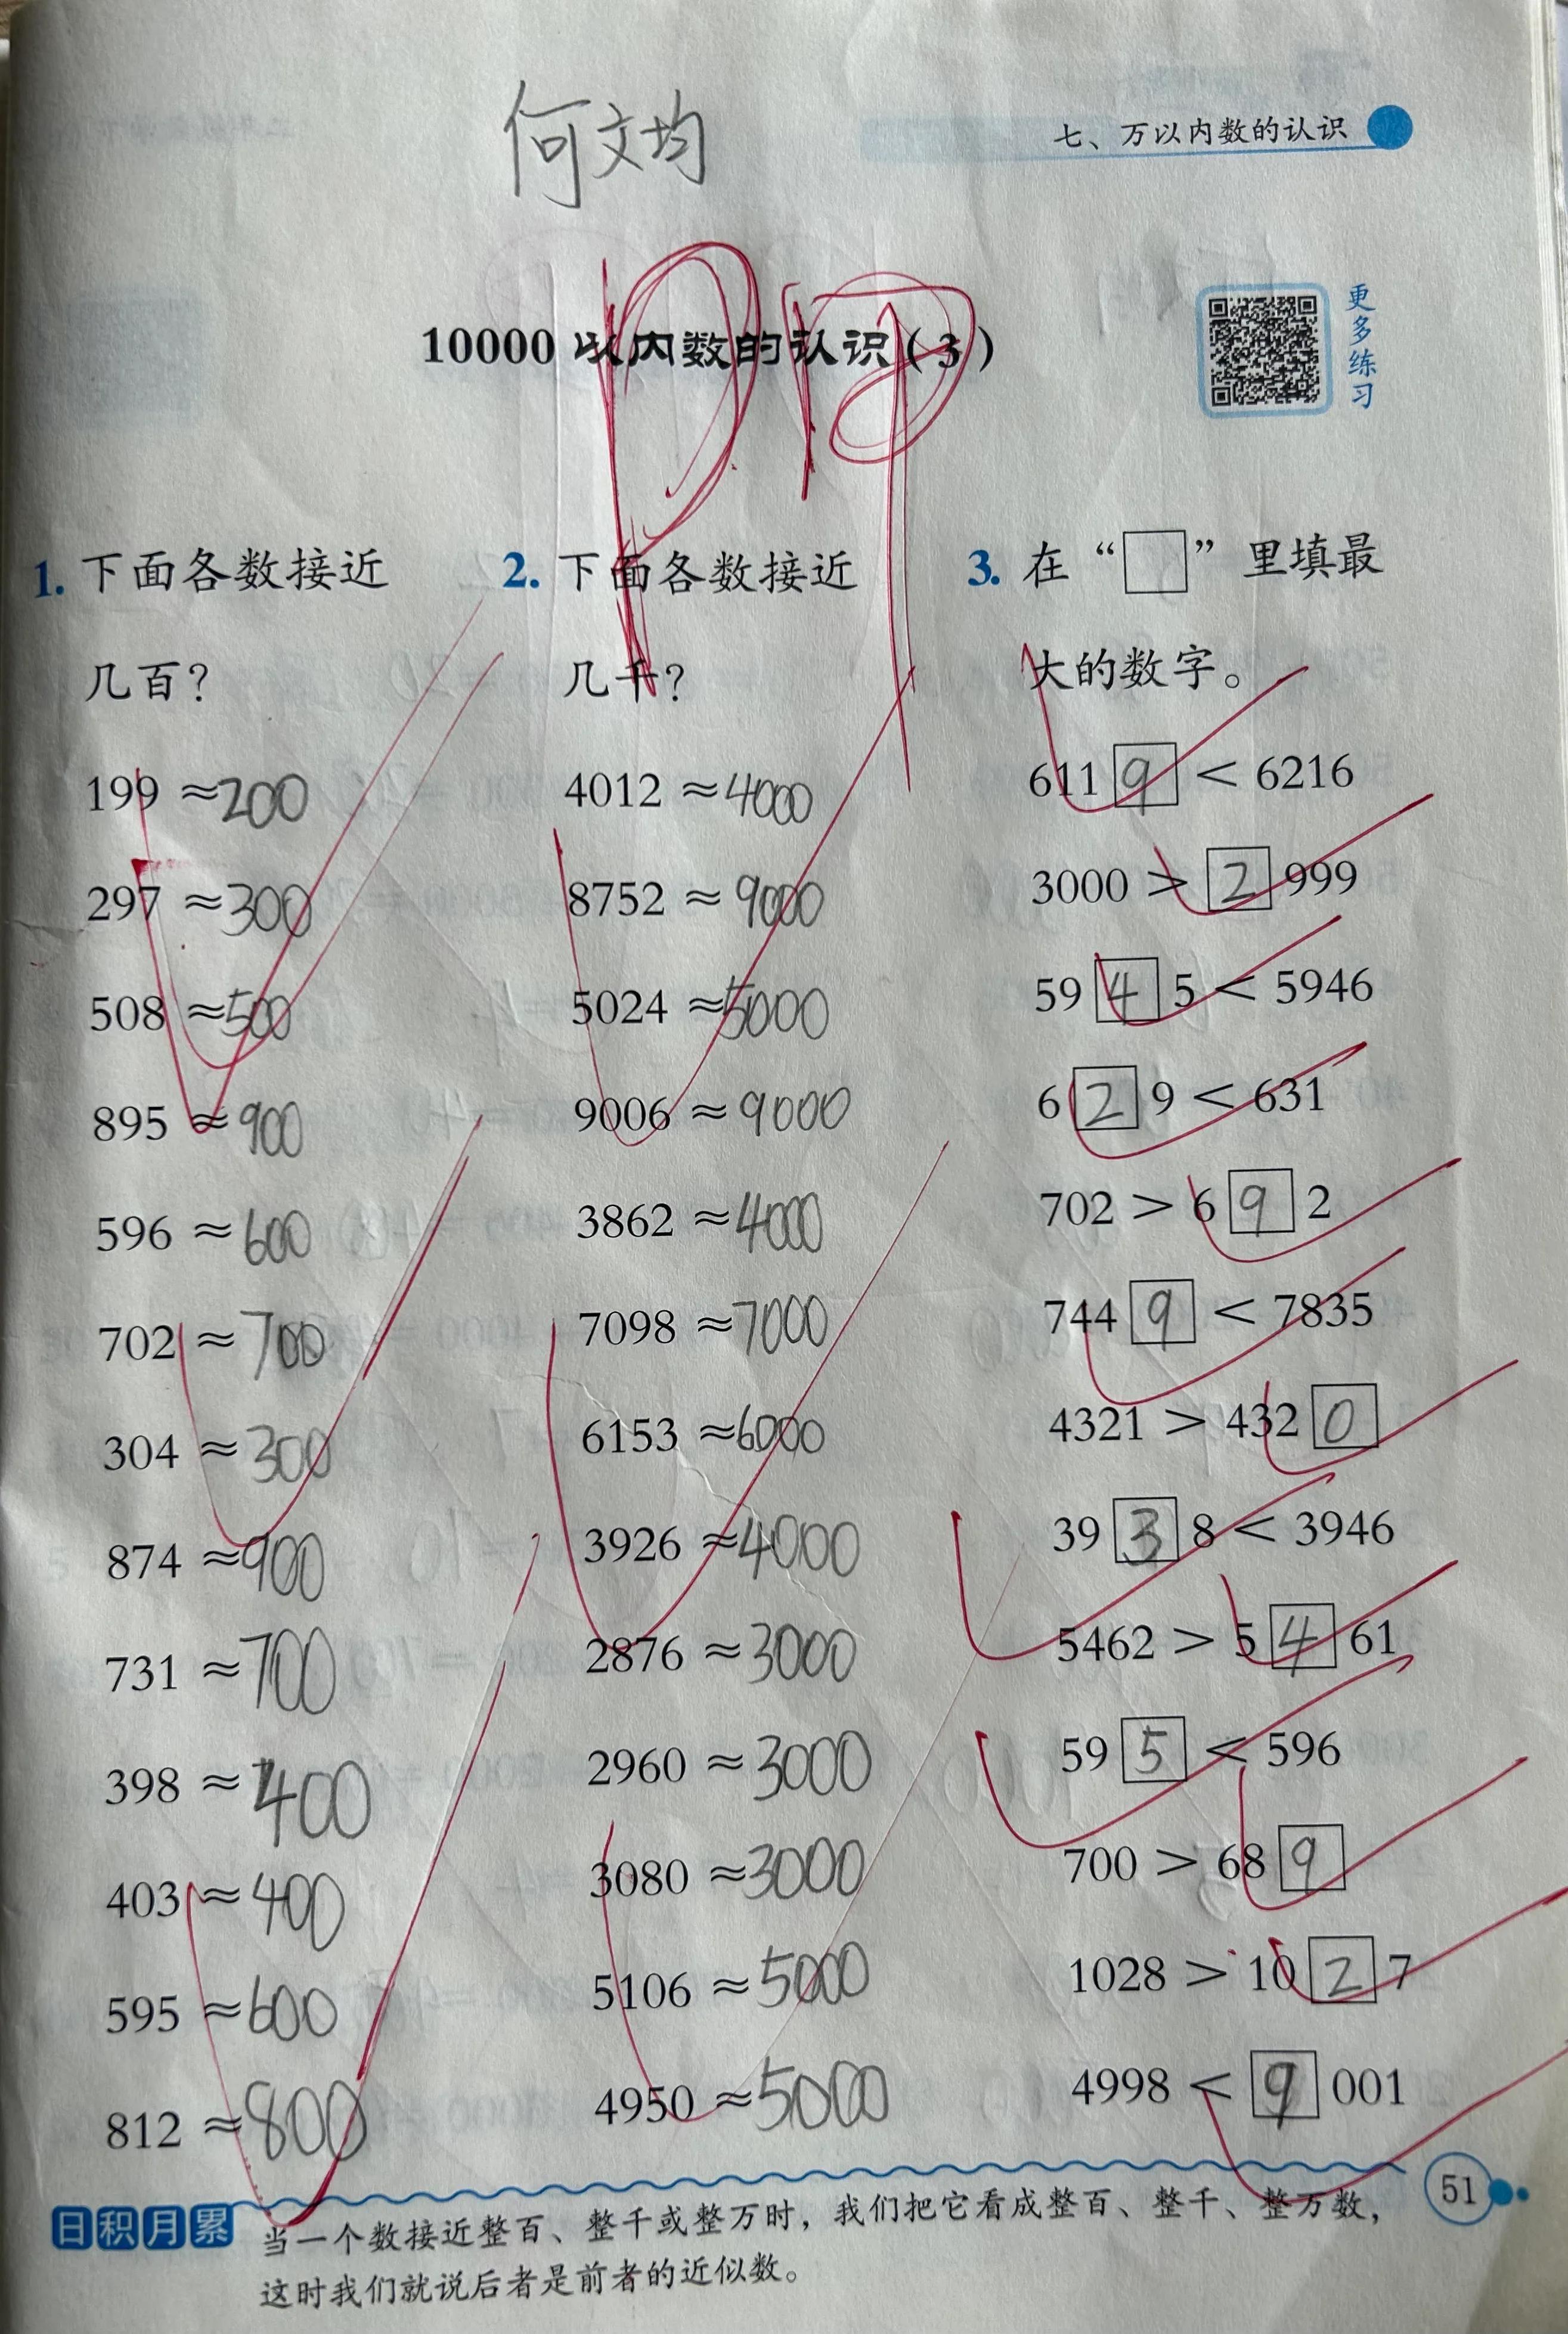 何文均
七、万以内数的认识
10000 以内数的认识(3)
更多练习
1. 下面各数接近
几百?
199 ≈200
297 ≈300
508 ≈500
895 ≈900
596 ≈600
702 ≈700
304 ≈300
874 ≈900
731 ≈700
398 ≈400
403 ≈400
595 ≈600
812 ≈800
2. 下面各数接近
几千?
4012 ≈4000
8752 ≈9000
5024 ≈5000
9006 ≈9000
3862 ≈4000
7098 ≈7000
6153 ≈6000
3926 ≈4000
2876 ≈3000
2960 ≈3000
3080 ≈3000
5106 ≈5000
4950 ≈5000
3. 在“□”里填最
大的数字。
6119 < 6216
3000 > 2999
5945 < 5946
629 < 631
702 > 692
7449 < 7835
4321 > 4320
3938 < 3946
5462 > 5461
595 < 596
700 > 689
1028 > 1027
4998 < 9001
51
日积月累
当一个数接近整百、整千或整万时，我们把它看成整百、整千、整万数，
这时我们就说后者是前者的近似数。